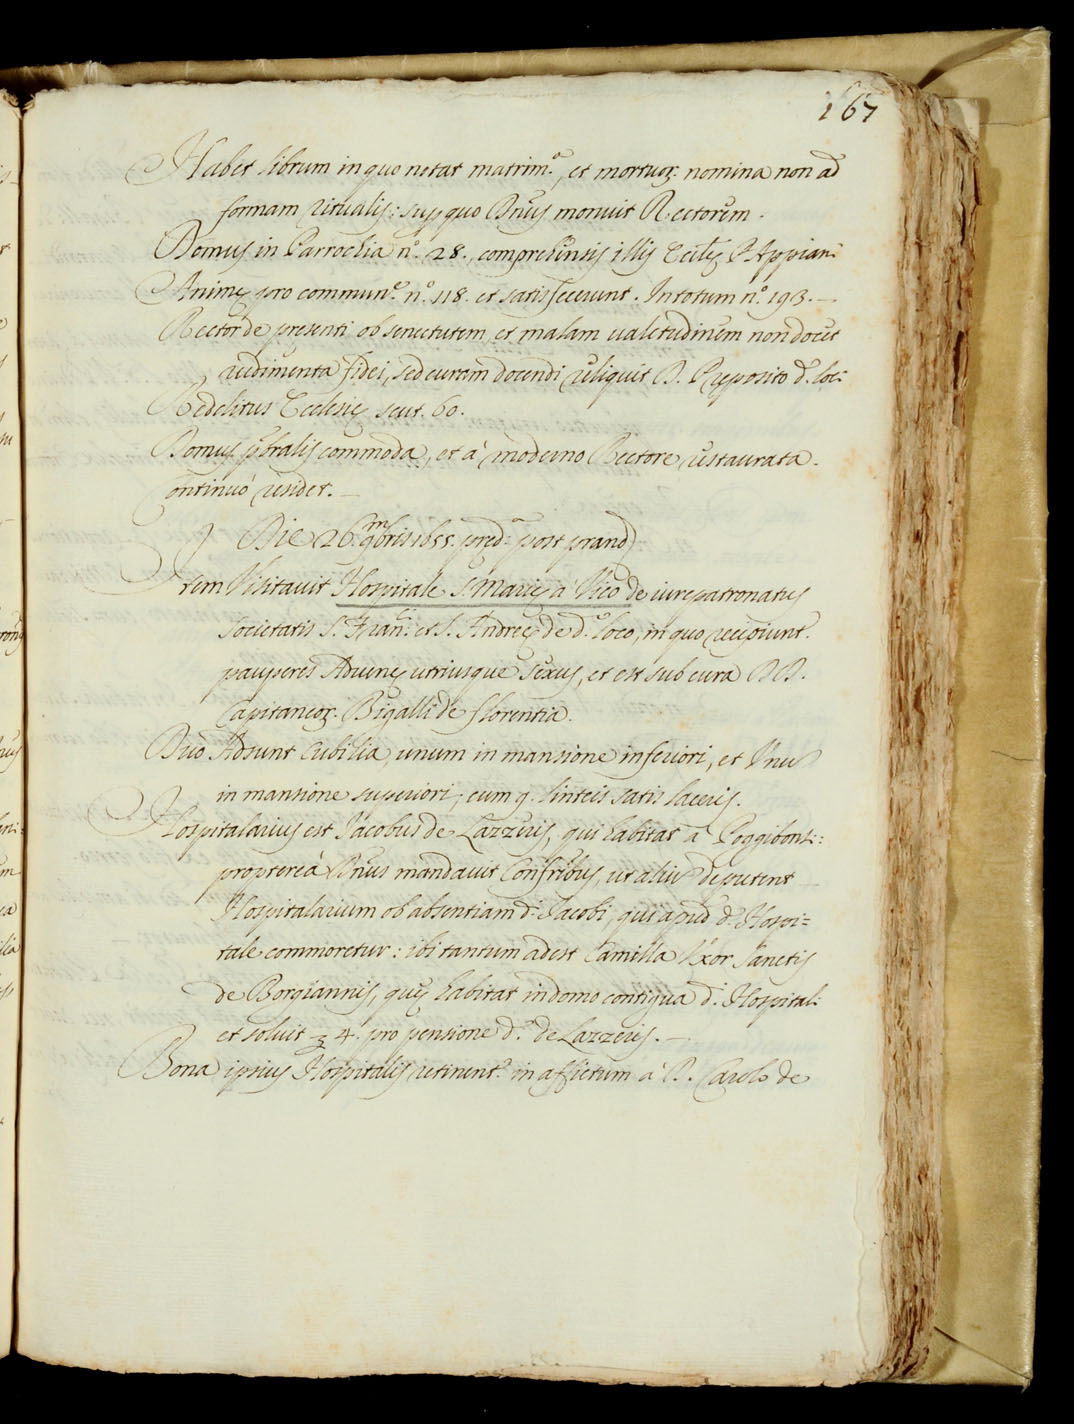 167
Habet librum in quo notat matrim.ª, et mortuoꝝ: nomina non ad
formam ritualis: sup quo Dnus monuit Rectorem.
Domus in Parrochia n.º 28. comprehensis illis Eccle P. Appian:
Animę pro commun.e n.º 118. et satisfecerunt. In totum n.º 193. —
Rector de presenti ob senectutem, et malam ualetudinem non docet
rudimenta fidei, sed curam docendi reliquit D. Preposito d. loc:
Redditus Ecclesię scut. 60.
Domus commoda, et à moderno Rectore restaurata.
Continuò residet. —
Die 26. 9bris 1655. pred.ª post prand
Item Visitauit Hospitale S. Marię à Vico de iurepatronatus
Societatis S. Fran.ci et S. Andreę de d.º loco, in quo recipiunt.
pauperes Aduenę utriusque sexus, et est sub cura DD.
Capitaneoꝝ. Bigalli de florentia.
Duo Adsunt Cubilia, unum in mansione inferiori, et Vnu
in mansione superiori; cum q. linteis satis laceris.
Hospitalarius est Jacobus de Lazzeris, qui habitat a Poggibons::
proptereà Dnus mandauit Confribus, ut aliu deputent
Hospitalarium ob absentiam d.i Jacobi, qui apud d.m Hospi=
tale commoretur: ibi tantum adest Camilla Vxor Sanctis
de Borgiannis, quę habitat in domo contigua d.i Hospital:
et soluit 4. pro pensione d.º de Lazzeris. —
Bona ipsius Hospitalis retinent.r in afflictum à D. Carolo de